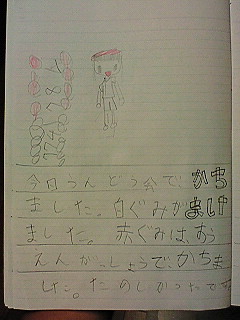 今日うんどう会で、かち
ました。白ぐみがまけ
ました。赤ぐみは、おう
えんがっしょうで、かちま
した。たのしかったです